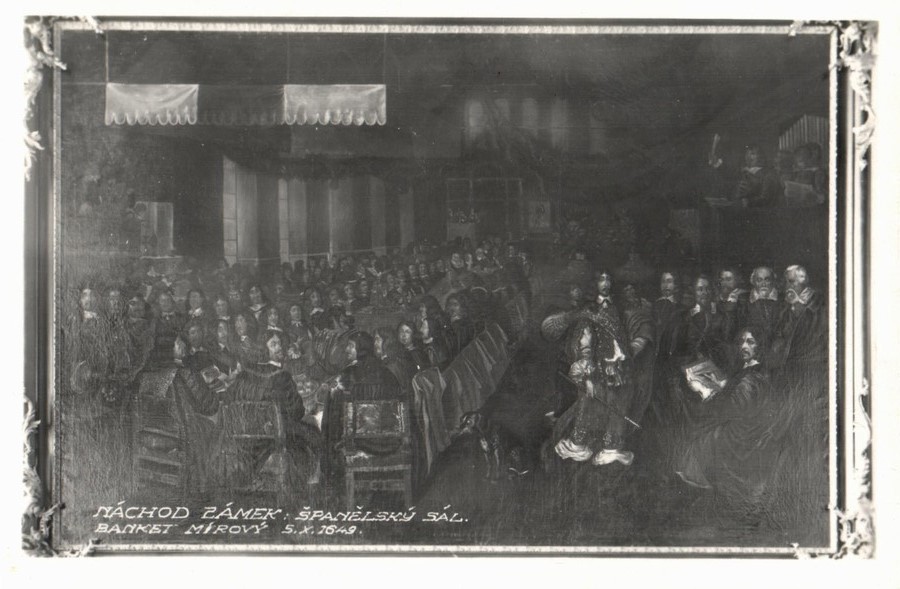 NÁCHOD ZÁMEK: ŠPANĚLSKÝ SÁL.
BANKET MÍROVÝ 5.X.1649.